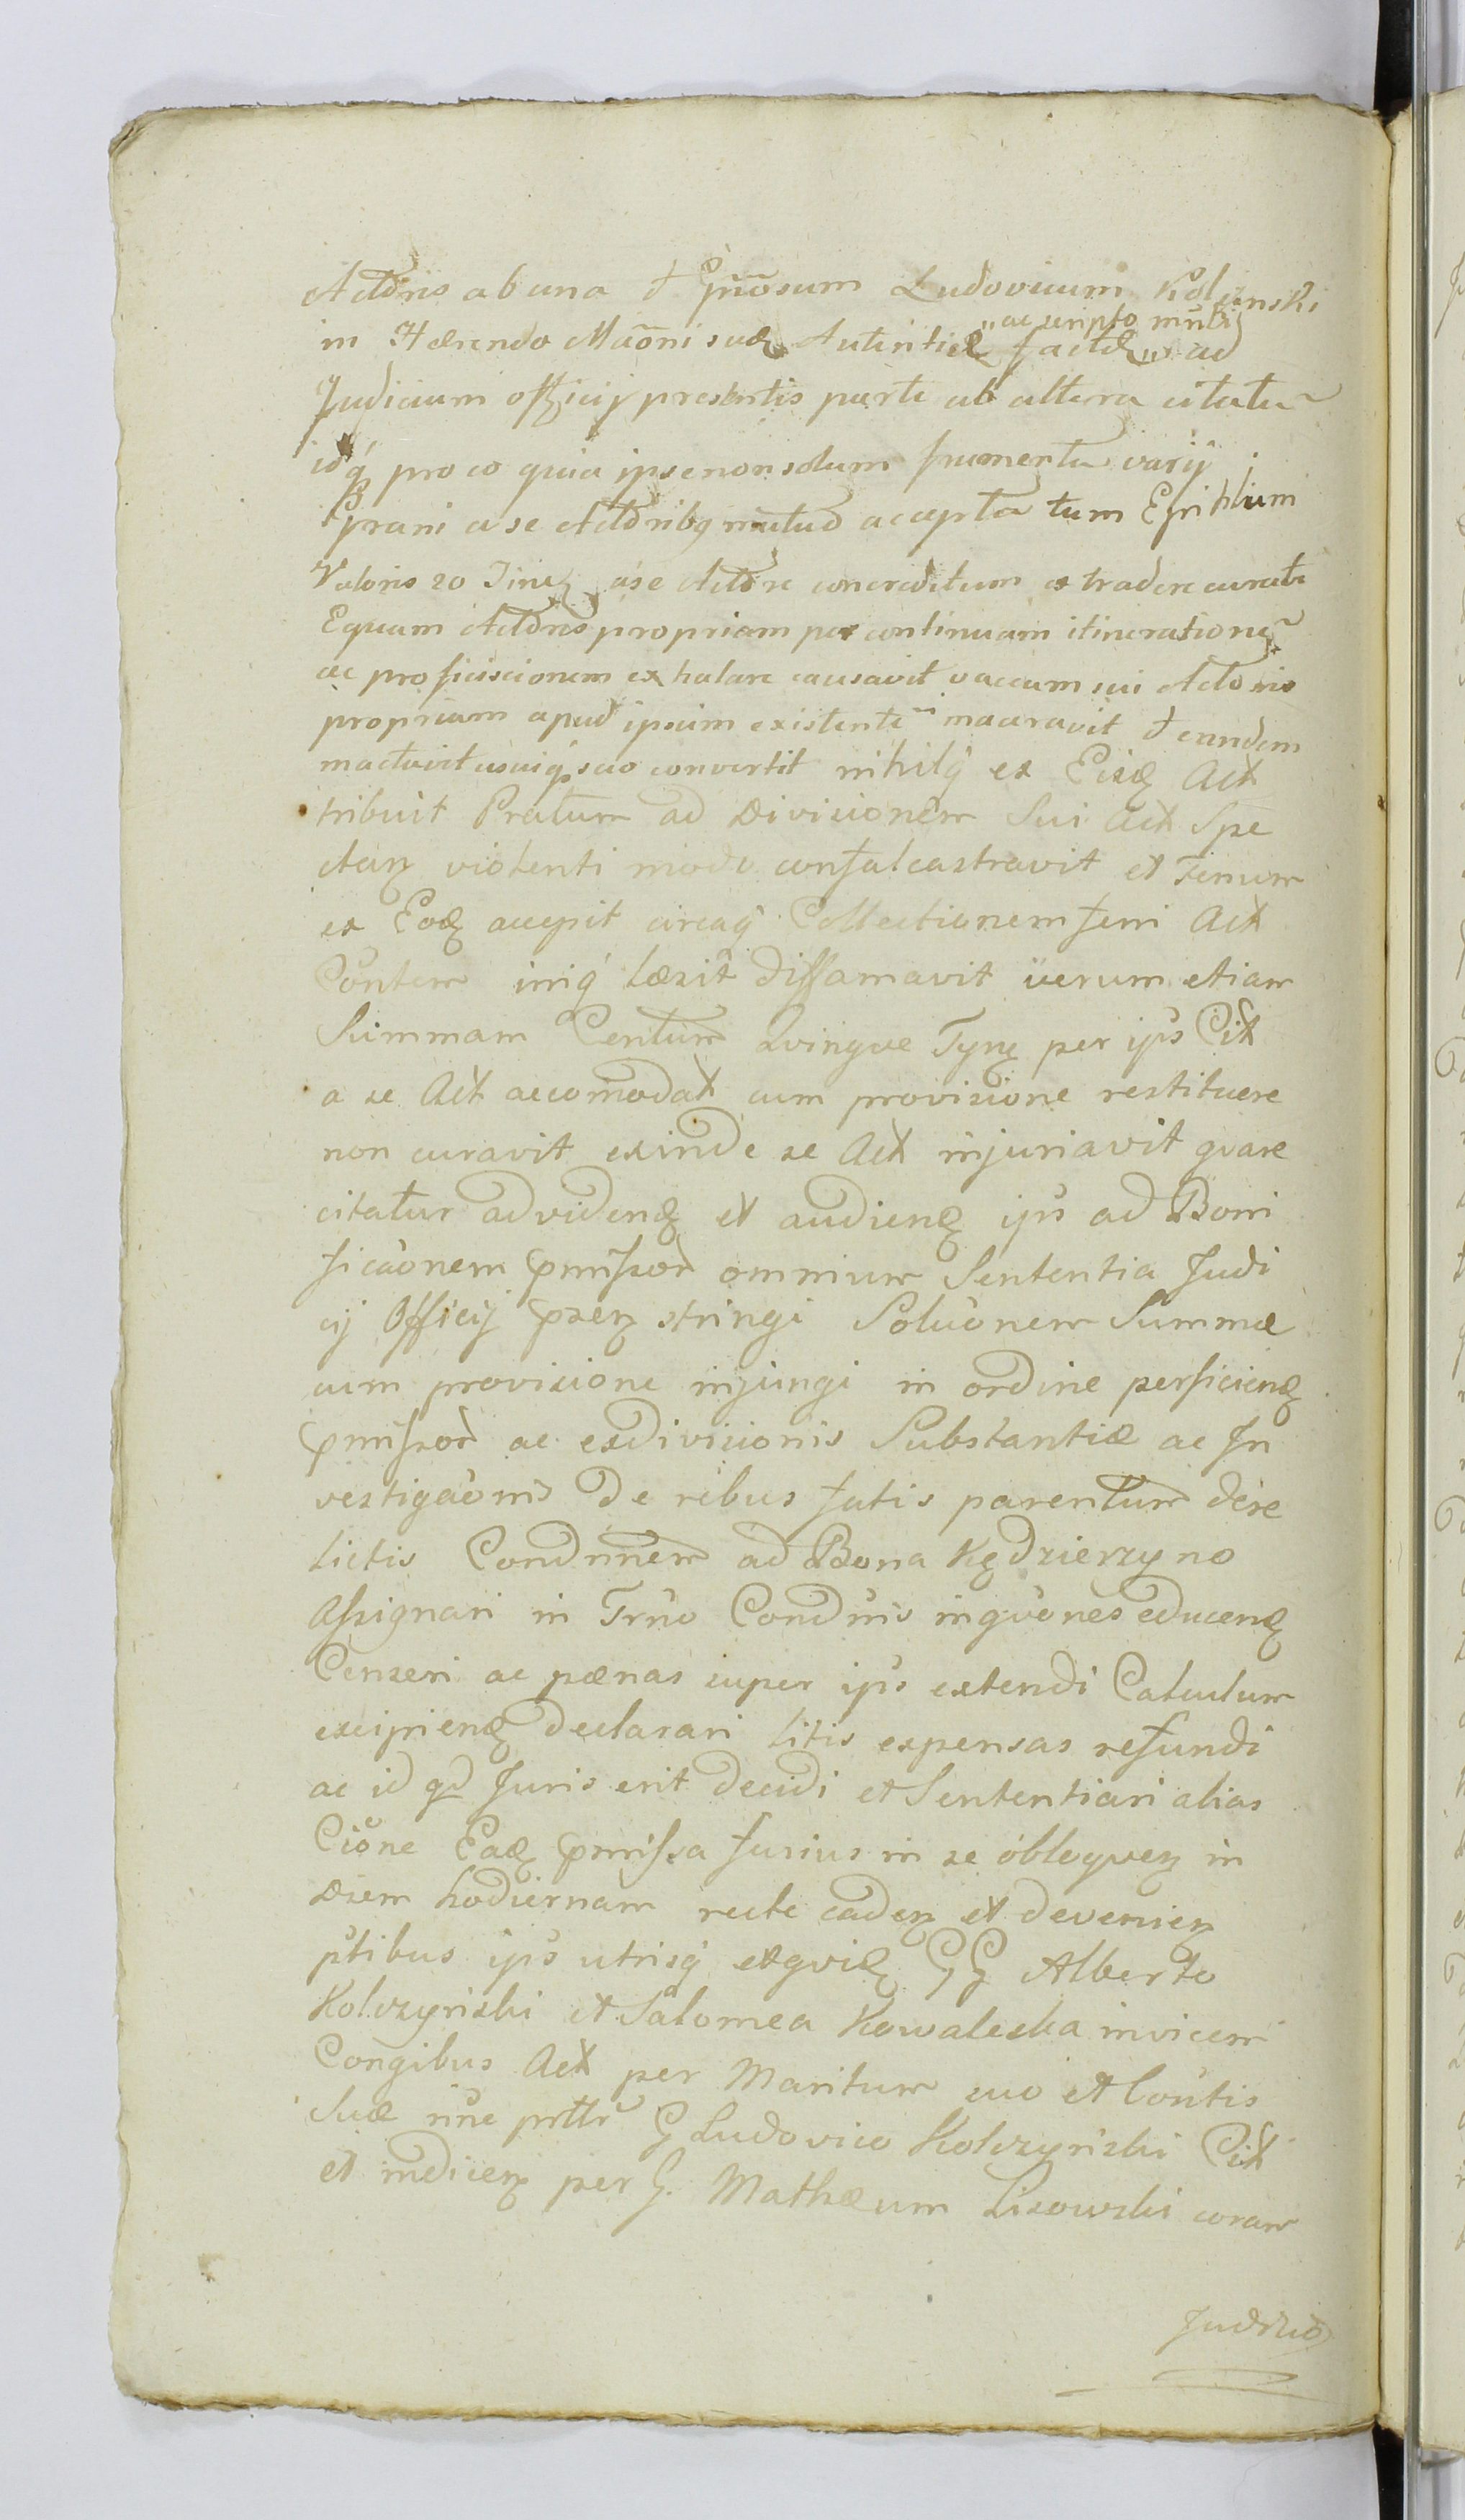 Actoris ab una et Gnõsum Ludovicum Kolzinski
in Hærendo Mãoni suæ Autentice "ac scripto
factæ" ad
Judicium officij presentis parte ab altera citatũ
idq̃ pro eo quia ipse non solum frumenta varij
Grani a se Actoribq mutuo accepta tum
Valoris 20 a se Actore concreditum extradere curati
Equam Actoris propriam per continuam itinerationẽ
ac proficiscionem exhalare causavit vaccam sui Actoris
propriam apud ipsum existentẽ macravit et eandem
mactavit usuiq̃ suo convertit nihilq̃ ex Eisd Act
tribuit Pratum ad Divisionem Sui Act Spe
ctan violenti modo confalcastravit et Fenum
ex Eod accepit circaq̃ Collectionem feni Act
Contem iniq̃ læsit diffamavit verum etiam
Summam Centum Qvinqve Tynf per ips Cit
a se Act accomodat cum provisione restituere
non curavit exinde se Act injuriavit qvare
citatur ad vidend et audiend ips ad Boni
ficaonem pmissor omnium Sententia Judi
cij Officij psen stringi Soluonem Summæ
cum provisione injungi in ordine perficiend
pmissor ac exdivisionis Substantiæ ac In
vestigaonis de rebus fatis parentum dere
lictis Condnnem ad Bona Kędzierzyno
Assignari in Trno Condnis inqvones educend
Censeri ac pænas super ips extendi Calculum
excipiend declarari litis expensas refundi
ac id qd Juris erit decidi et Sententiari alias
Cione Ead pmissa fusius in se obloqven in
Diem hodiernam recte caden et devenien
ptibus ips utrisq̃ GG Alberto
Kolczynski et Salomea Kowaleska invicem
Congibus Act per Maritum suo et Contis
Suæ nne G Ludovico Kolczynski Cit
et indicen per G. Mathæum Lisowski coram
Judicio